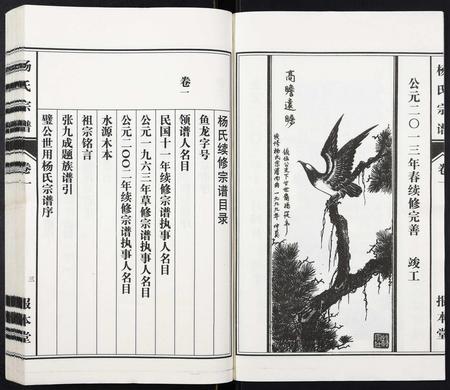 公元二0一三年春续修完善 竣工
杨氏宗谱
卷一
报本堂
高瞻遠瞩
杨氏续修宗谱目录
卷一
鱼龙字号
领谱人名目
民国十一年续修宗谱执事人名目
公元一九六三年草修宗谱执事人名目
公元二00二年续修宗谱执事人名目
水源木本
祖宗铭言
张九成题族谱引
璧公世用杨氏宗谱序
杨氏宗谱
卷一
三
报本堂